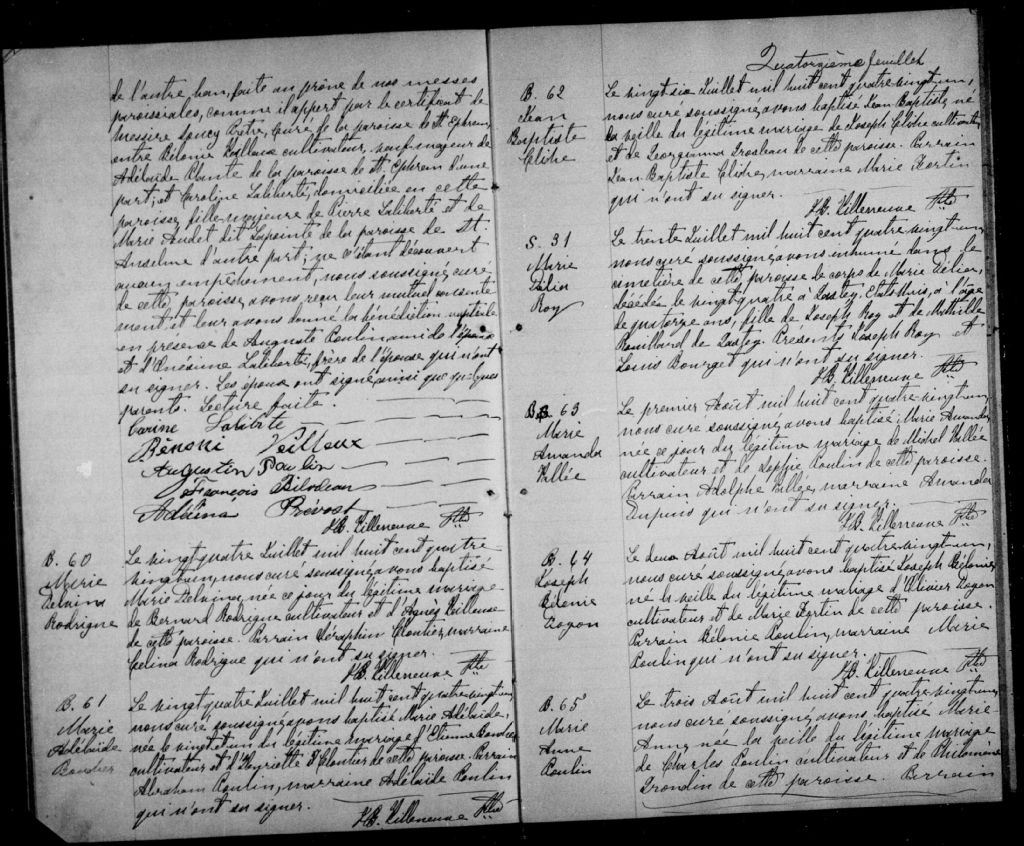 de l'autre ban, faite au prône de nos messes
paroissiales, comme il appert par le certificat de
messire Prêtre, Curé de la paroisse de St. Ephrem
entre Bélonie Veilleux cultivateur, veuf majeur de
Adélaide de la paroisse de St. Ephrem d'une
part; et Caroline Laliberté, domiciliée en cette
paroisse, fille majeure de Pierre Laliberté et de
Marie Audet dit Lapointe de la paroisse de St.
Anselme l'autre part; ne s'étant découvert
aucun empêchement, nous soussigné, curé
de cette paroisse, avons reçu leur mutuel consente
ment et leur avons donné la bénédiction nuptiale
en présence de Auguste Poulin ami de l'époux
et d'Onésime Laliberté, frère de l'épouse qui n'ont
su signer. Les époux ont signé ainsi que quelques
parents. Lecture faite.
Carine Laliberte
Bénoni Veilleux
Augustin Poulin
François Bilodeau
Adelina Prévost
J.B. Villeneuve Ptre
B. 60
Marie
Delvina
Rodrigue
Le vingt quatre Juillet mil huit cent quatre
vingt un, nous curé soussigné, avons baptisé
Marie Delvina, née ce jour du légitime mariage
de Bernard Rodrigue cultivateur et d'Agnès Veilleux
de cette paroisse. Parrain Séraphin Cloutier, marraine
Celina Rodrigue qui n'ont su signer.
J.B. Villeneuve Ptre
B. 61
Marie
Adélaide
Boucher
Le vingt quatre Juillet mil huit cent quatre vingt un,
nous curé soussigné, avons baptisé Marie Adélaide,
née le vingt et un du légitime mariage d'Etienne Boucher
cultivateur et d'Henriette Cloutier de cette paroisse. Parrain
Abraham Poulin, marraine Adélaide Poulin
qui n'ont su signer.
J.B. Villeneuve Ptre
Quatorzième feuillet
B. 62
Jean
Baptiste
Cliche
Le vingt six Juillet mil huit cent quatre vingt un,
nous curé soussigné, avons baptisé Jean Baptiste, né
la veille du légitime mariage de Joseph Cliche cultivateur
et de Georgianna Grosleau de cette paroisse. Parrain
Jean Baptiste Cliche, marraine Marie Fortin
qui n'ont su signer.
J.B. Villeneuve Ptre
S. 31
Marie
Célia
Roy
Le trente Juillet mil huit cent quatre vingt un,
nous curé soussigné, avons inhumé dans le
cimetière de cette paroisse le corps de Marie Célia,
décédée le vingt quatre à Etats Unis, à l'âge
de quatorze ans, fille de Joseph Roy et de Mathilde
Rouillard de Présents Joseph Roy et
Louis Bourget qui n'ont su signer.
J.B. Villeneuve Ptre
B. 63
Marie
Amanda
Vallée
Le premier Août mil huit cent quatre vingt un
nous curé soussigné, avons baptisé, Marie Amanda
née ce jour du légitime mariage de Michel Vallée
cultivateur et de Sophie Poulin de cette paroisse.
Parrain Adolphe Vallée, marraine Amanda
Dupuis qui n'ont su signer.
J.B. Villeneuve Ptre
B. 64
Joseph
Bélonie
Doyon
Le deux Août mil huit cent quatre vingt un,
nous curé soussigné, avons baptisé Joseph Bélonie,
né la veille du légitime mariage d'Olivier Doyon
cultivateur et de Marie Fortin de cette paroisse.
Parrain Bélonie Poulin, marraine Marie
Poulin qui n'ont su signer.
J.B. Villeneuve Ptre
B. 65
Marie
Anne
Poulin
Le trois Août mil huit cent quatre vingt un
nous curé soussigné, avons baptisé Marie-
Anne, née la veille du légitime mariage
de Charles Poulin cultivateur et de Philomène
Grondin de cette paroisse. Parrain